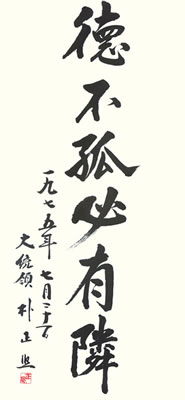 德不孤必有隣
一九七五年 七月
大統領 朴正熙